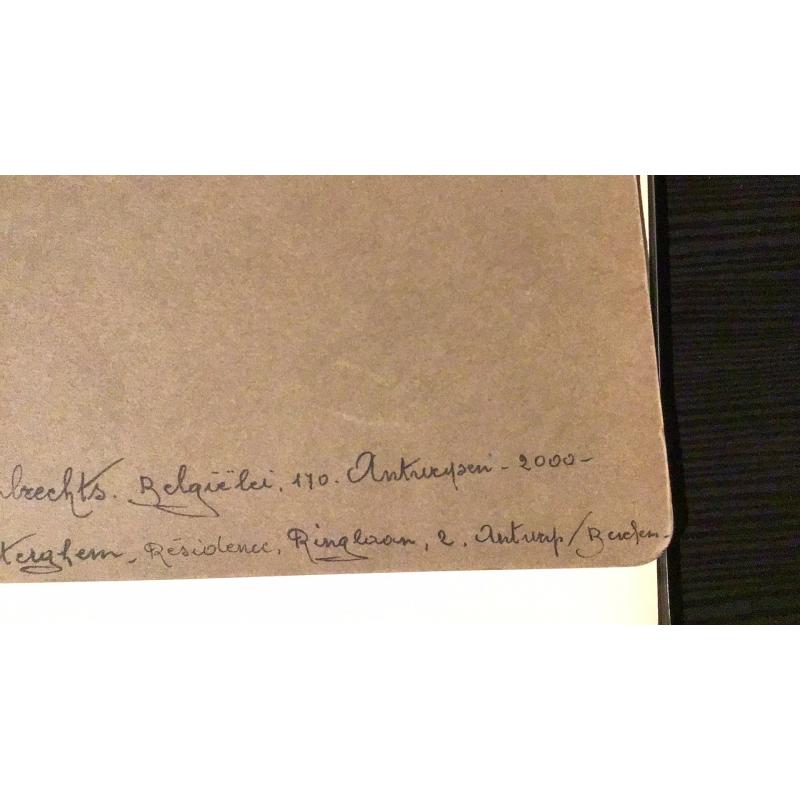 brechts. Belgiëlei, 170. Antwerpen - 2000 -
terghem - Résidence, Ringlaan, 2. Antwerp/Berchem -